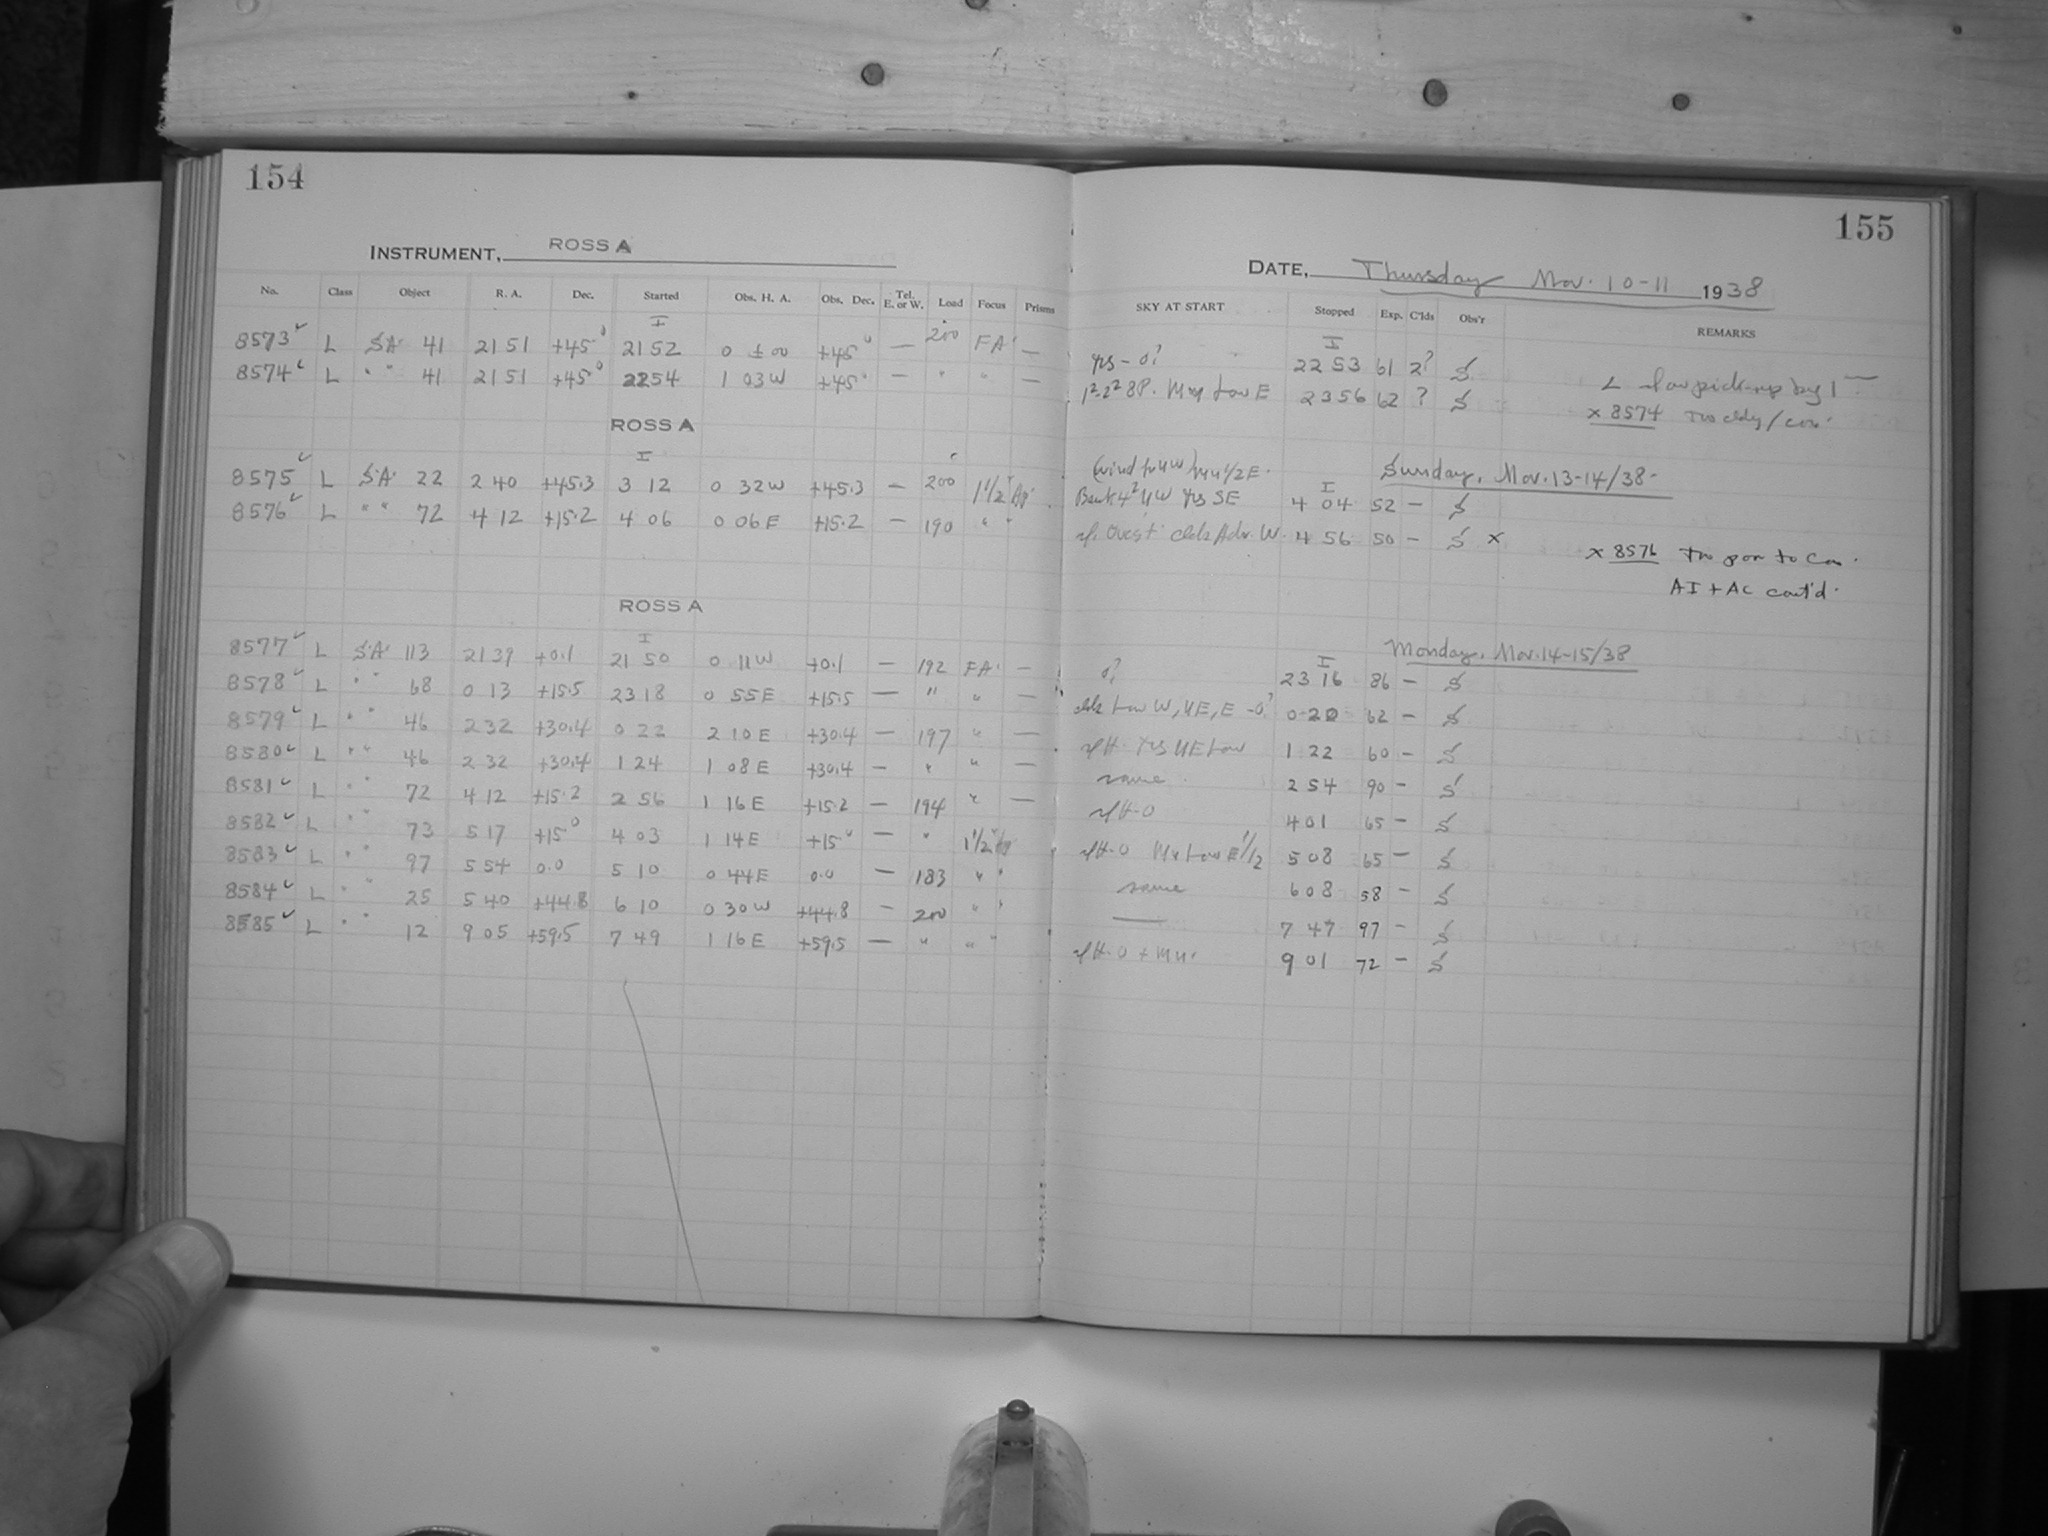 154
INSTRUMENT, ROSS A
No. Class Object R. A. Dec. Started Obs. H. A. Obs. Dec. Tel. E. or W. Load Focus Prisms
I
8573 L S.A. 41 21 51 +45° 21 52 0 ±00 +45° — 200 FA —
8574 L " " 41 21 51 +45° 22 54 1 03W +45° — " " —
ROSS A
I
8575 L S.A. 22 2 40 +45.3 3 12 0 32W +45.3 — 200 1 1/2"
8576 L " " 72 4 12 +15.2 4 06 0 06E +15.2 — 190 " "
ROSS A
I
8577 L S.A. 113 21 39 +0.1 21 50 0 11W +0.1 — 192 FA —
8578 L " " 68 0 13 +15.5 23 18 0 55E +15.5 — " " —
8579 L " " 46 2 32 +30.4 0 22 2 10E +30.4 — 197 " —
8580 L " " 46 2 32 +30.4 1 24 1 08E +30.4 — " " —
8581 L " " 72 4 12 +15.2 2 56 1 16E +15.2 — 194 " —
8582 L " " 73 5 17 +15° 4 03 1 14E +15° — " 1 1/2"
8583 L " " 97 5 54 0.0 5 10 0 44E 0.0 — 183 " "
8584 L " " 25 5 40 +44.8 6 10 0 30W +44.8 — 200 " "
8585 L " " 12 9 05 +59.5 7 49 1 16E +59.5 — " " "
155
DATE, Thursday Nov. 10-11 1938
SKY AT START Stopped Exp. C'lds Obs'r REMARKS
I
22 53 61 2? S
Low E 23 56 62 ? S
L pick-up by 1
x 8574 Too cldy /
Sunday, Nov. 13-14/38
I
SE 4 04 52 — S
W. 4 56 50 — S x
x 8576 Too
AI + AC cont'd.
Monday, Nov. 14-15/38
I
0? 23 16 86 — S
Low W, NE, E -0? 0 20 62 — S
NE Low 1 22 60 — S
same 2 54 90 — S
4 01 65 — S
Low E 1/2 5 08 65 — S
same 6 08 58 — S
— 7 47 97 — S
9 01 72 — S